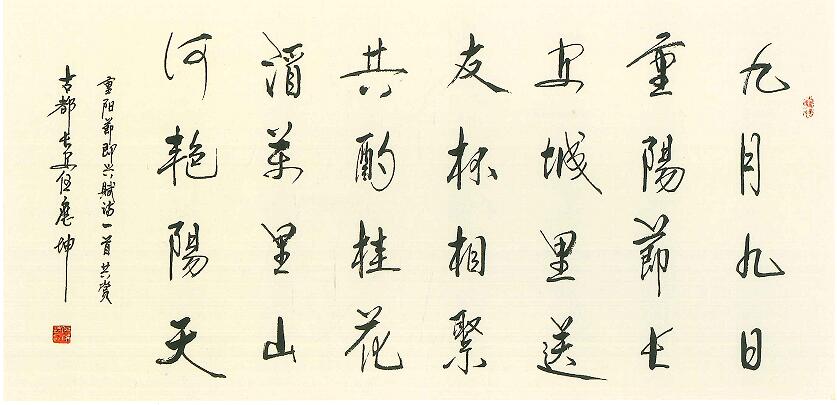 九月九日
重陽節长
安城里送
友杯相聚
共酌桂花
酒萬里山
河艳陽天
重阳節即兴赋诗一首共赏
古都长安任坤